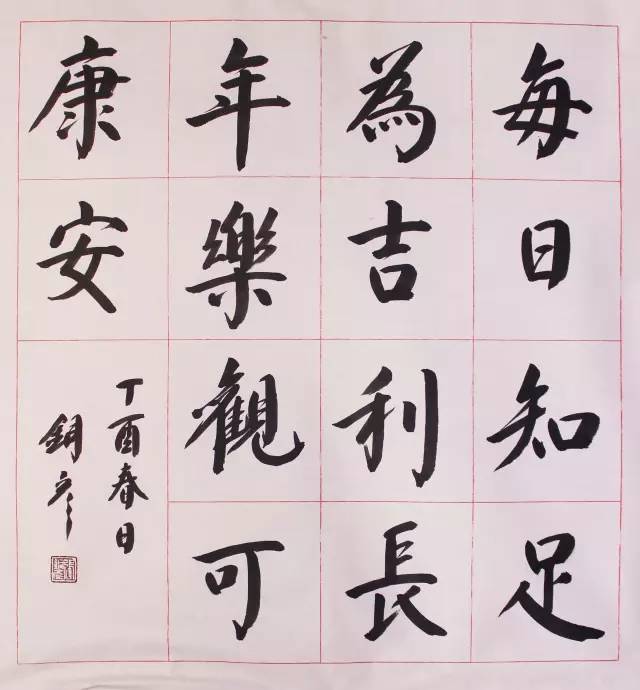 每日知足
為吉利長
年樂觀可
康安
丁酉春日
銅彥